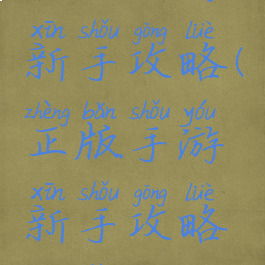 xīn shǒu gōng lüè
新手攻略(
zhèng bǎn shǒu yóu
正版手游
xīn shǒu gōng lüè
新手攻略